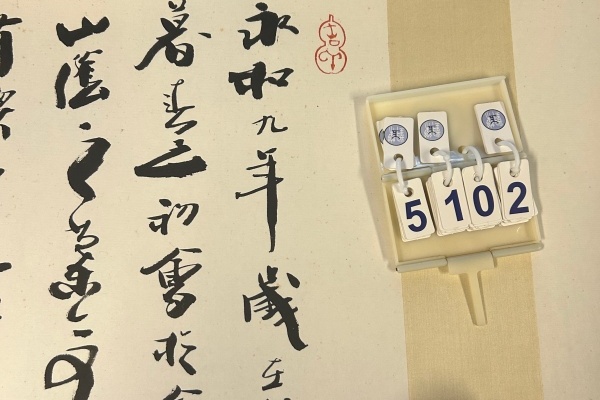 永和九年歲在
暮春之初會於
山陰之蘭亭
5102